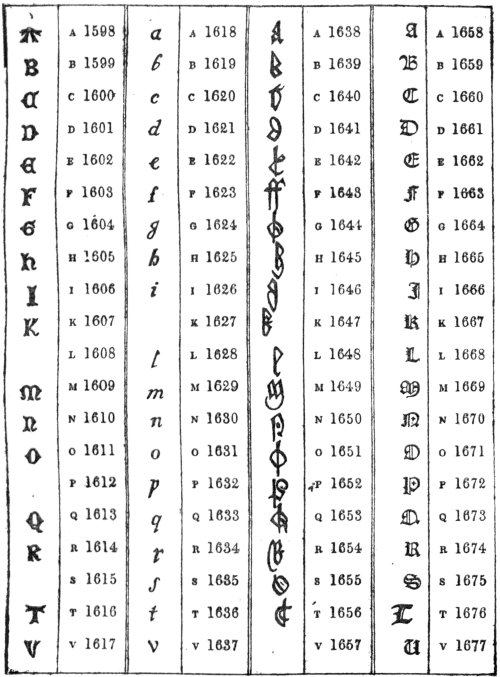 A A 1598 a A 1618 A A 1638 A A 1658
B B 1599 b B 1619 B B 1639 B B 1659
C C 1600 c C 1620 C 1640 C C 1660
D D 1601 d D 1621 D 1641 D D 1661
E E 1602 e E 1622 E 1642 E E 1662
F F 1603 f F 1623 F 1643 F F 1663
G G 1604 g G 1624 G 1644 G G 1664
h H 1605 h H 1625 H 1645 H H 1665
I I 1606 i I 1626 I 1646 I I 1666
K K 1607 K 1627 K 1647 K K 1667
L 1608 l L 1628 L 1648 L L 1668
m M 1609 m M 1629 M 1649 M M 1669
n N 1610 n N 1630 N 1650 N N 1670
O O 1611 o O 1631 O 1651 O O 1671
P 1612 p P 1632 P 1652 P P 1672
Q Q 1613 q Q 1633 Q 1653 Q Q 1673
R R 1614 r R 1634 R 1654 R R 1674
S 1615 ſ S 1635 S 1655 S S 1675
T T 1616 t T 1636 T 1656 T T 1676
V V 1617 v V 1637 V 1657 U V 1677